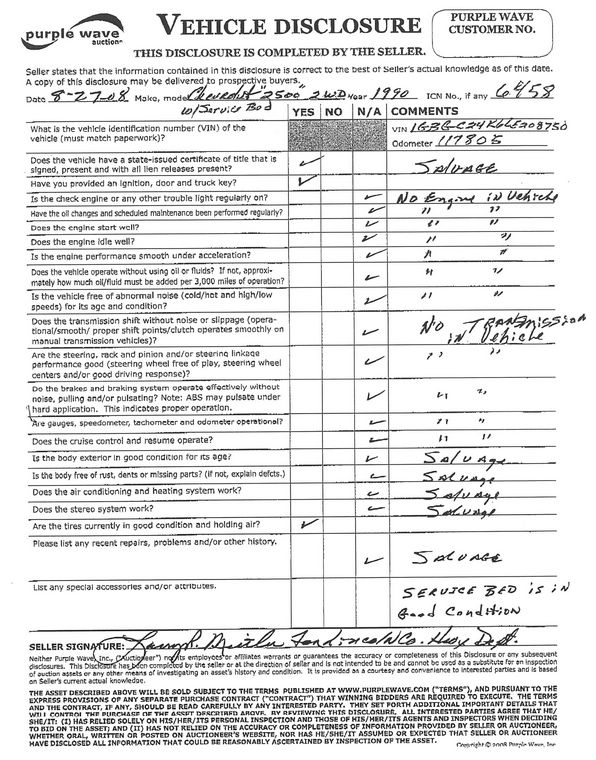 purple wave
auction
VEHICLE DISCLOSURE
THIS DISCLOSURE IS COMPLETED BY THE SELLER.
PURPLE WAVE
CUSTOMER NO.
Seller states that the information contained in this disclosure is correct to the best of Seller's actual knowledge as of this date.
A copy of this disclosure may be delivered to prospective buyers.
Date 8-27-08 Make, model Chevrolet "2500" 2WD Year 1990 ICN No., if any 6458
w/Service Bed
YES NO N/A COMMENTS
What is the vehicle identification number (VIN) of the
vehicle (must match paperwork)?
VIN
Odometer 117805
Does the vehicle have a state-issued certificate of title that is
signed, present and with all lien releases present? ✓ SALVAGE
Have you provided an ignition, door and truck key? ✓
Is the check engine or any other trouble light regularly on? ✓ No Engine in Vehicle
Have the oil changes and scheduled maintenance been performed regularly? ✓ " "
Does the engine start well? ✓ " "
Does the engine idle well? ✓ " "
Is the engine performance smooth under acceleration? ✓ " "
Does the vehicle operate without using oil or fluids? If not, approxi-
mately how much oil/fluid must be added per 3,000 miles of operation? ✓ " "
Is the vehicle free of abnormal noise (cold/hot and high/low
speeds) for its age and condition? ✓ " "
Does the transmission shift without noise or slippage (opera-
tional/smooth/ proper shift points/clutch operates smoothly on
manual transmission vehicles)? ✓ No TRANSMISSION
in Vehicle
Are the steering, rack and pinion and/or steering linkage
performance good (steering wheel free of play, steering wheel
centers and/or good driving response)? ✓ " "
Do the brakes and braking system operate effectively without
noise, pulling and/or pulsating? Note: ABS may pulsate under
hard application. This indicates proper operation. ✓ " "
Are gauges, speedometer, tachometer and odometer operational? ✓ " "
Does the cruise control and resume operate? ✓ " "
Is the body exterior in good condition for its age? ✓ Salvage
Is the body free of rust, dents or missing parts? (if not, explain defcts.) ✓ Salvage
Does the air conditioning and heating system work? ✓ Salvage
Does the stereo system work? ✓ Salvage
Are the tires currently in good condition and holding air? ✓
Please list any recent repairs, problems and/or other history. ✓ SALVAGE
List any special accessories and/or attributes. SERVICE BED IS IN
Good CONDITION
SELLER SIGNATURE:
Neither Purple Wave, Inc., ("Auctioneer") nor its employees or affiliates warrants or guarantees the accuracy or completeness of this Disclosure or any subsequent
disclosures. This Disclosure has been completed by the seller or at the direction of seller and is not intended to be and cannot be used as a substitute for an inspection
of auction assets or any other means of investigating an asset's history and condition. It is provided as a courtesy and convenience to interested parties and is based
on Seller's current actual knowledge.
THE ASSET DESCRIBED ABOVE WILL BE SOLD SUBJECT TO THE TERMS PUBLISHED AT WWW.PURPLEWAVE.COM ("TERMS"), AND PURSUANT TO THE
EXPRESS PROVISIONS OF ANY SEPARATE PURCHASE CONTRACT ("CONTRACT") THAT WINNING BIDDERS ARE REQUIRED TO EXECUTE. THE TERMS
AND THE CONTRACT, IF ANY, SHOULD BE READ CAREFULLY BY ANY INTERESTED PARTY. THEY SET FORTH ADDITIONAL IMPORTANT DETAILS THAT
WILL CONTROL THE PURCHASE OF THE ASSET DESCRIBED ABOVE. BY REVIEWING THIS DISCLOSURE, ALL INTERESTED PARTIES AGREE THAT HE/
SHE/IT: (I) HAS RELIED SOLELY ON HIS/HER/ITS PERSONAL INSPECTION AND THOSE OF HIS/HER/ITS AGENTS AND INSPECTORS WHEN DECIDING
TO BID ON THE ASSET; AND (II) HAS NOT RELIED ON THE ACCURACY OR COMPLETENESS OF INFORMATION PROVIDED BY SELLER OR AUCTIONEER,
WHETHER ORAL, WRITTEN OR POSTED ON AUCTIONEER'S WEBSITE, NOR HAS HE/SHE/IT ASSUMED OR EXPECTED THAT SELLER OR AUCTIONEER
HAVE DISCLOSED ALL INFORMATION THAT COULD BE REASONABLY ASCERTAINED BY INSPECTION OF THE ASSET.
Copyright © 2008 Purple Wave, Inc.